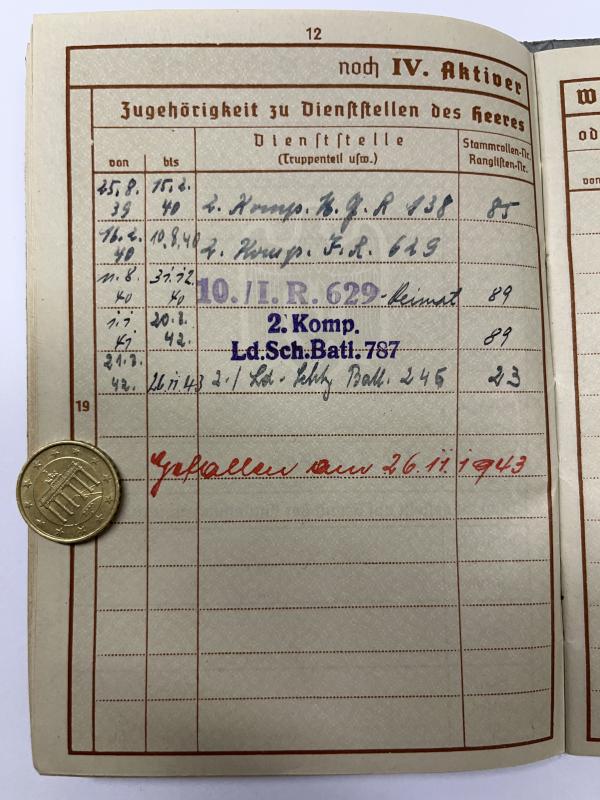 12
noch IV. Aktiver
Zugehörigkeit zu Dienststellen des Heeres
von
bis
Dienststelle
(Truppenteil usw.)
Stammrollen-Nr.
Ranglisten-Nr.
25.8.39 15.2.40 2. Komp. 138 85
16.2.40 10.8.40 2. Komp. 629
11.8.40 31.12.40 10./I. R. 629- Heimat 89
1.1.41 20.3.42. 2. Komp. Ld.Sch.Batl. 787 89
21.3.42. 26.11.43 2./ Ld.-Schtz Batl. 246 23
19
Gefallen am 26.11.1943
W
od
von